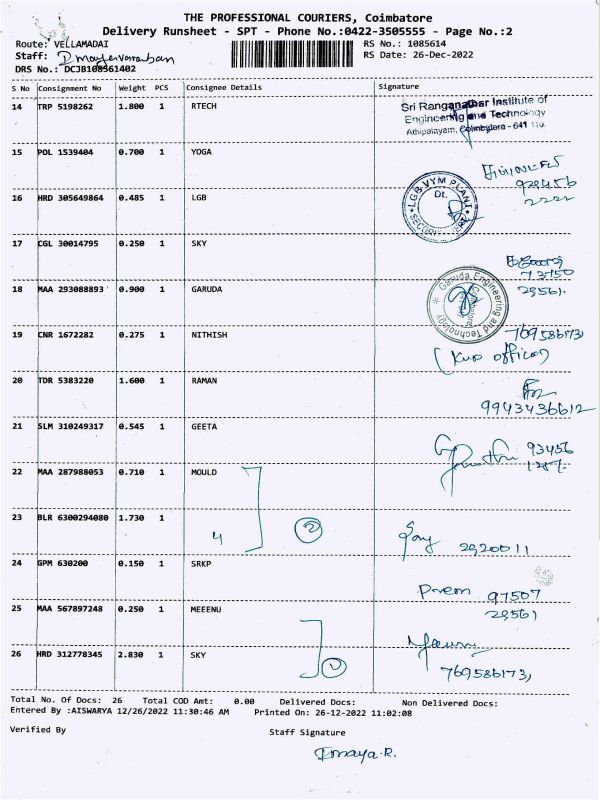 THE PROFESSIONAL COURIERS, Coimbatore
Delivery Runsheet - SPT - Phone No.:0422-3505555 - Page No.:2
Route: VELLAMADAI RS No.: 1085614
Staff: RS Date: 26-Dec-2022
DRS No.: DCJB108561402
S No Consignment No Weight PCS Consignee Details Signature
14 TRP 5198262 1.800 1 RTECH
Sri Ranganathar Institute of
Engineering and Technology
Athipalayam, Coimbatore - 641 110.
15 POL 1539404 0.700 1 YOGA
16 HRD 305649864 0.485 1 LGB
LGB VYM PLANT
Dt.
SECURITY
17 CGL 30014795 0.250 1 SKY
73750
29561
18 MAA 293088893 0.900 1 GARUDA
Garuda Engineering and Technology
19 CNR 1672282 0.275 1 NITHISH
769586173
(KVP office)
20 TDR 5383220 1.600 1 RAMAN
9943436612
21 SLM 310249317 0.545 1 GEETA
93456
22 MAA 287988053 0.710 1 MOULD
23 BLR 6300294080 1.730 1
4 2
2920011
24 GPM 630200 0.150 1 SRKP
Prem 97507
29561
25 MAA 567897248 0.250 1 MEEENU
26 HRD 312778345 2.830 1 SKY
1
769586173,
Total No. Of Docs: 26 Total COD Amt: 0.00 Delivered Docs: Non Delivered Docs:
Entered By :AISWARYA 12/26/2022 11:30:46 AM Printed On: 26-12-2022 11:02:08
Verified By Staff Signature